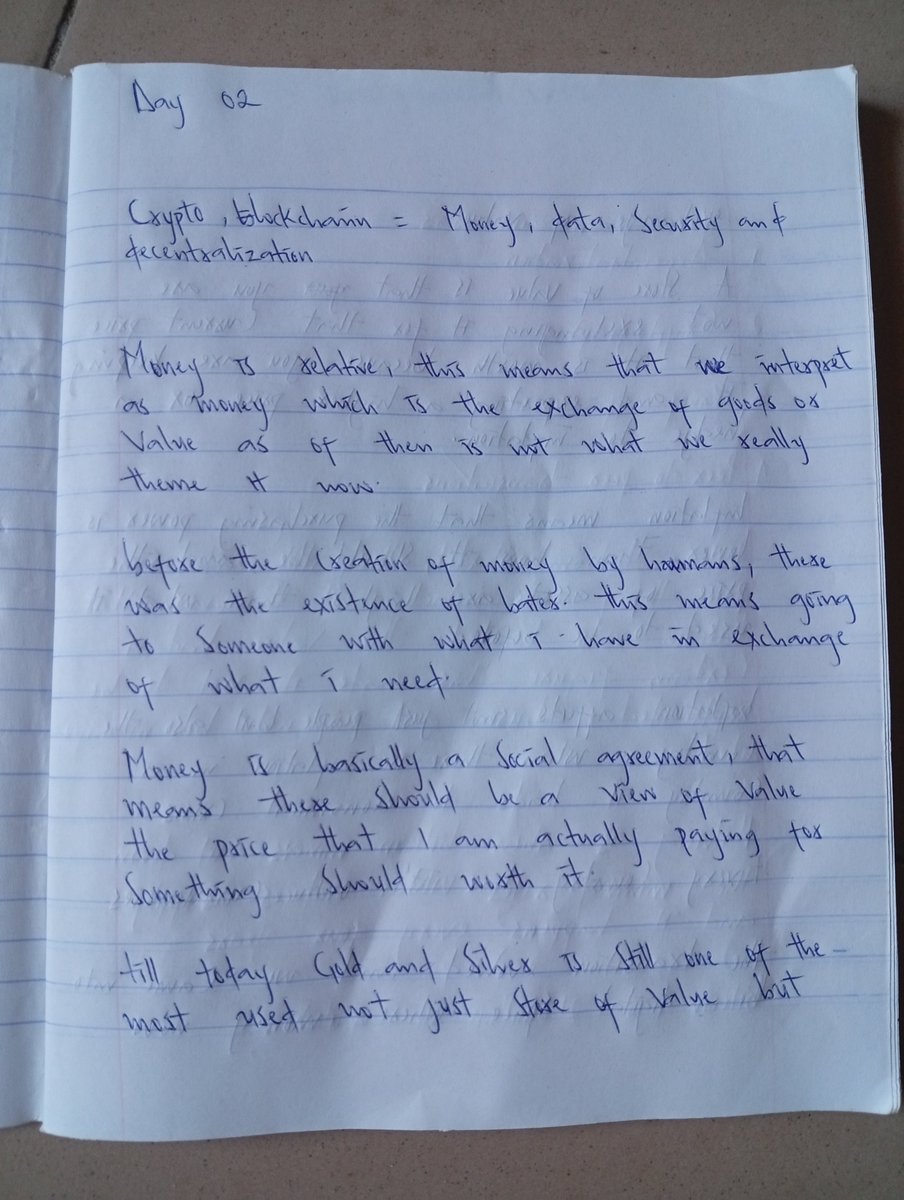 Day 02
Crypto, blockchain = Money, data, Security and
decentralization
Money is relative, this means that we interpret
as money which is the exchange of goods or
Value as of then is not what we really
theme it now.
before the Creation of money by humans, there
was the existence of bater. this means going
to Someone with what i have in exchange
of what i need.
Money is basically a Social agreement, that
means there should be a view of Value
the price that I am actually paying for
Something Should worth it.
till today Gold and Silver is Still one of the
most used not just Store of Value but